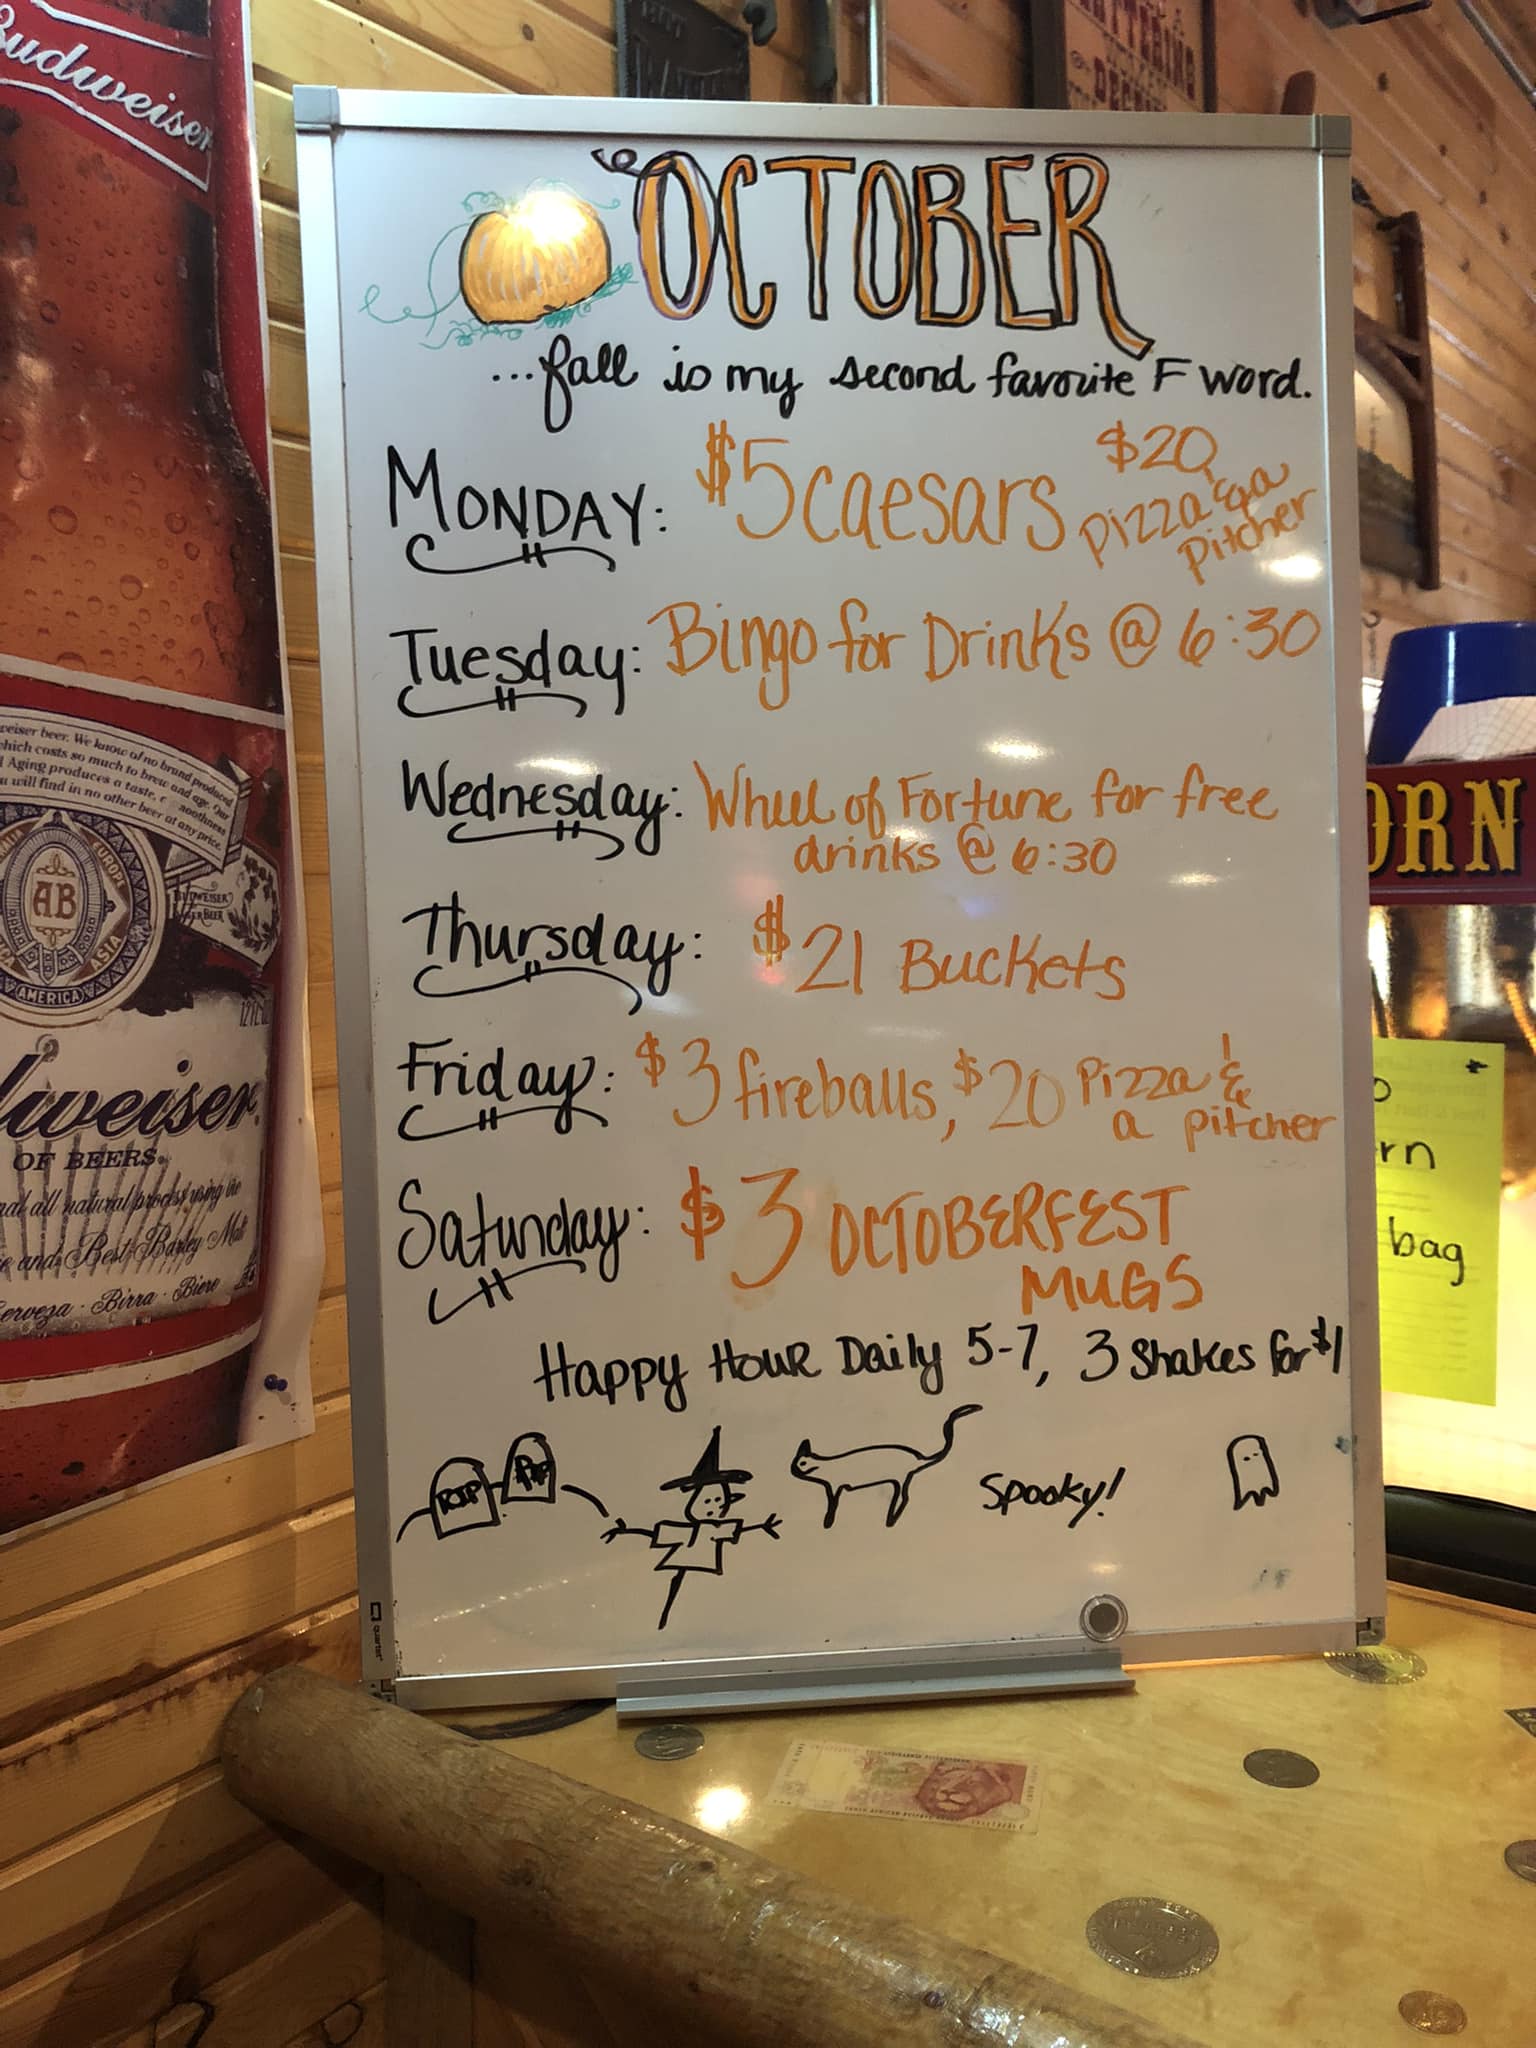 Budweiser
OCTOBER
...fall is my second favorite F word.
MONDAY: $5 caesars $20 pizza & a pitcher
Tuesday: Bingo for Drinks @ 6:30
Wednesday: Wheel of Fortune for free
drinks @ 6:30
Thursday: $21 Buckets
Friday: $3 fireballs, $20 Pizza &
a pitcher
Saturday: $3 OCTOBERFEST
MUGS
Happy Hour Daily 5-7, 3 Shakes for $1
RIP RIP
Spooky!
quartet
weiser beer. We know of no brand produced
which costs so much to brew and age. Our
Aging produces a taste,
will find in no other beer at any price.
EUROPE
AB
ASIA
AMERICA
weiser
OF BEERS.
all natural process using the
and Best Barley Malt
Cerveza · Birra · Biere
ORN
rn
bag